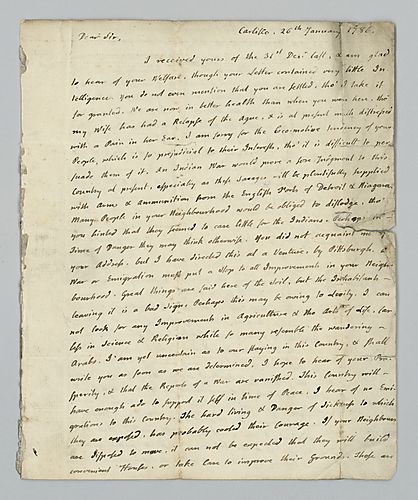 Carlisle. 26th January 1786.
Dear Sir,
I received yours of the 31st Decr last, & am glad
to hear of your Welfare, though your Letter contained very little In-
telligence. You do not even mention that you are settled, tho' I take it
for granted. We are now in better health than when you were here, tho'
my Wife has had a Relapse of the Ague, & is at present much distressed
with a Pain in her Ear. I am sorry for the Loco-motive tendency of your
People, which is so prejudicial to their Interests, tho' it is difficult to per-
suade them of it. An Indian War would prove a sore Judgment to this
Country at present, especially as these Savages will be plentifully supplied
with Arms & Ammunition from the English Posts of Detroit & Niagara.
Many People in your Neighbourhood would be obliged to dislodge, tho'
you hinted that they seemed to care little for the Indians. Perhaps in
Time of Danger they may think otherwise. You did not acquaint me
your Address, but I have directed this at a Venture, by Pittsburgh. A
War or Emigration must put a Stop to all Improvements in your Neigh-
bourhood. Great things are said here of the Soil, but the Inhabitants
leaving it is a bad Sign. Perhaps this may be owing to Levity. I can
not look for any Improvements in Agriculture & the Arts of Life, far
less in Science & Religion while so many resemble the wandering
Arabs. I am yet uncertain as to our staying in this Country, & shall
write you as soon as we are determined. I hope to hear of your Pro-
sperity, & that the Reports of a War are vanished. This Country will
have enough ado to support it self in time of Peace. I hear of no Emi-
grations to this Country. The hard living & Danger of Sickness to which
they are exposed, has probably cooled their Courage. If your Neighbours
are disposed to move, it can not be expected that they will build
convenient Houses, or take Care to improve their Grounds. These are